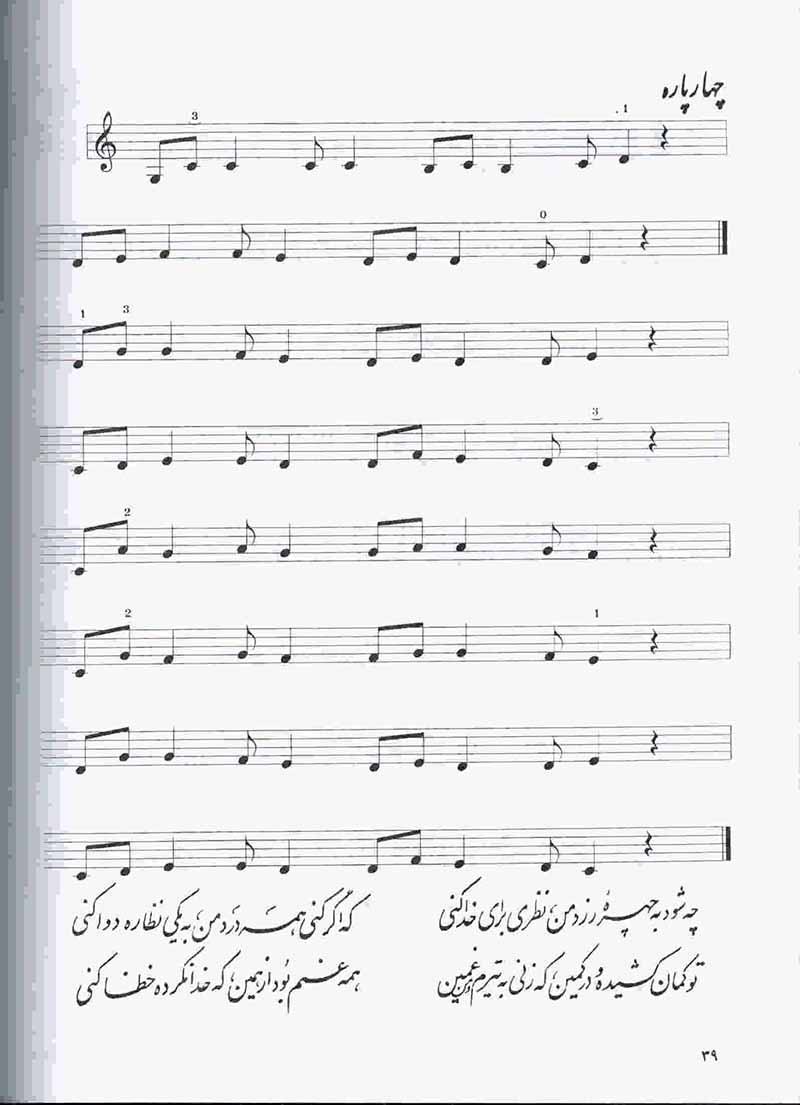 چهارپاره
3 1
0
1 3
3
2
2 1
چه شود به چهرهٔ زرد من، نظری برای خدا کنی که اگر کنی همه درد من، به یکی نظاره دوا کنی
تو کمان کشیده و در کمین، که زنی به تیرم و من غمین همه غمم بُود از همین، که خدا نکرده خطا کنی
۳۹